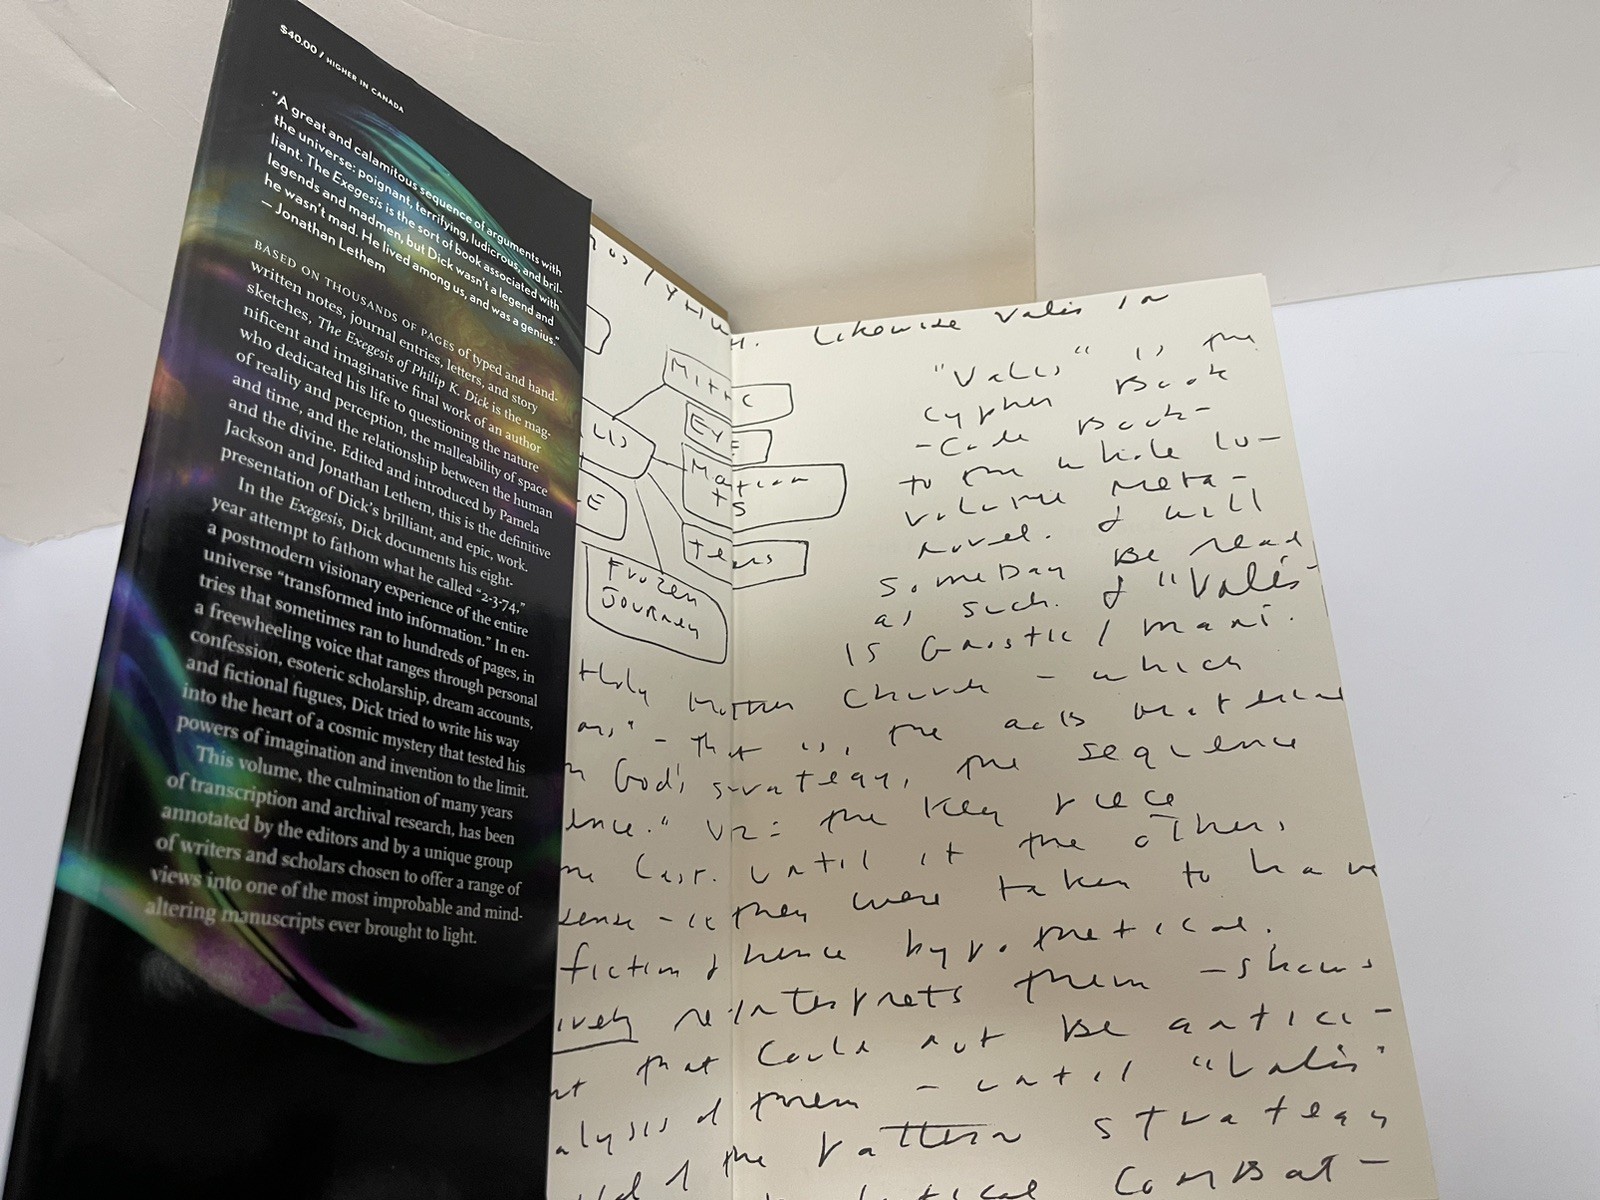 $40.00 / HIGHER IN CANADA
"A great and calamitous sequence of arguments with
the universe: poignant, terrifying, ludicrous, and bril-
liant. The Exegesis is the sort of book associated with
legends and madmen, but Dick wasn't a legend and
he wasn't mad. He lived among us, and was a genius."
— Jonathan Lethem
BASED ON THOUSANDS OF PAGES of typed and hand-
written notes, journal entries, letters, and story
sketches, The Exegesis of Philip K. Dick is the mag-
nificent and imaginative final work of an author
who dedicated his life to questioning the nature
of reality and perception, the malleability of space
and time, and the relationship between the human
and the divine. Edited and introduced by Pamela
Jackson and Jonathan Lethem, this is the definitive
presentation of Dick's brilliant, and epic, work.
In the Exegesis, Dick documents his eight-
year attempt to fathom what he called "2-3-74,"
a postmodern visionary experience of the entire
universe "transformed into information." In en-
tries that sometimes ran to hundreds of pages, in
a freewheeling voice that ranges through personal
confession, esoteric scholarship, dream accounts,
and fictional fugues, Dick tried to write his way
into the heart of a cosmic mystery that tested his
powers of imagination and invention to the limit.
This volume, the culmination of many years
of transcription and archival research, has been
annotated by the editors and by a unique group
of writers and scholars chosen to offer a range of
views into one of the most improbable and mind-
altering manuscripts ever brought to light.
Likewise Valis in
"Valis" is the
cypher Book
-Code Book-
to the whole 10-
volume meta-
novel. & will
someday be read
as such. & "Valis"
is Gnostic / Mani.
MITHC
EYE
Martian
TS
Tears
Frozen
Journey
Holy Mother Church - which
- that is, the acts material
God's strategy, the sequence
the key piece
last. Until it the others
sense - ie they were taken to have
fiction & hence hypothetical.
re-interprets them - shows
that could not be antici-
them - until "Valis"
& the pattern strategy
combat-